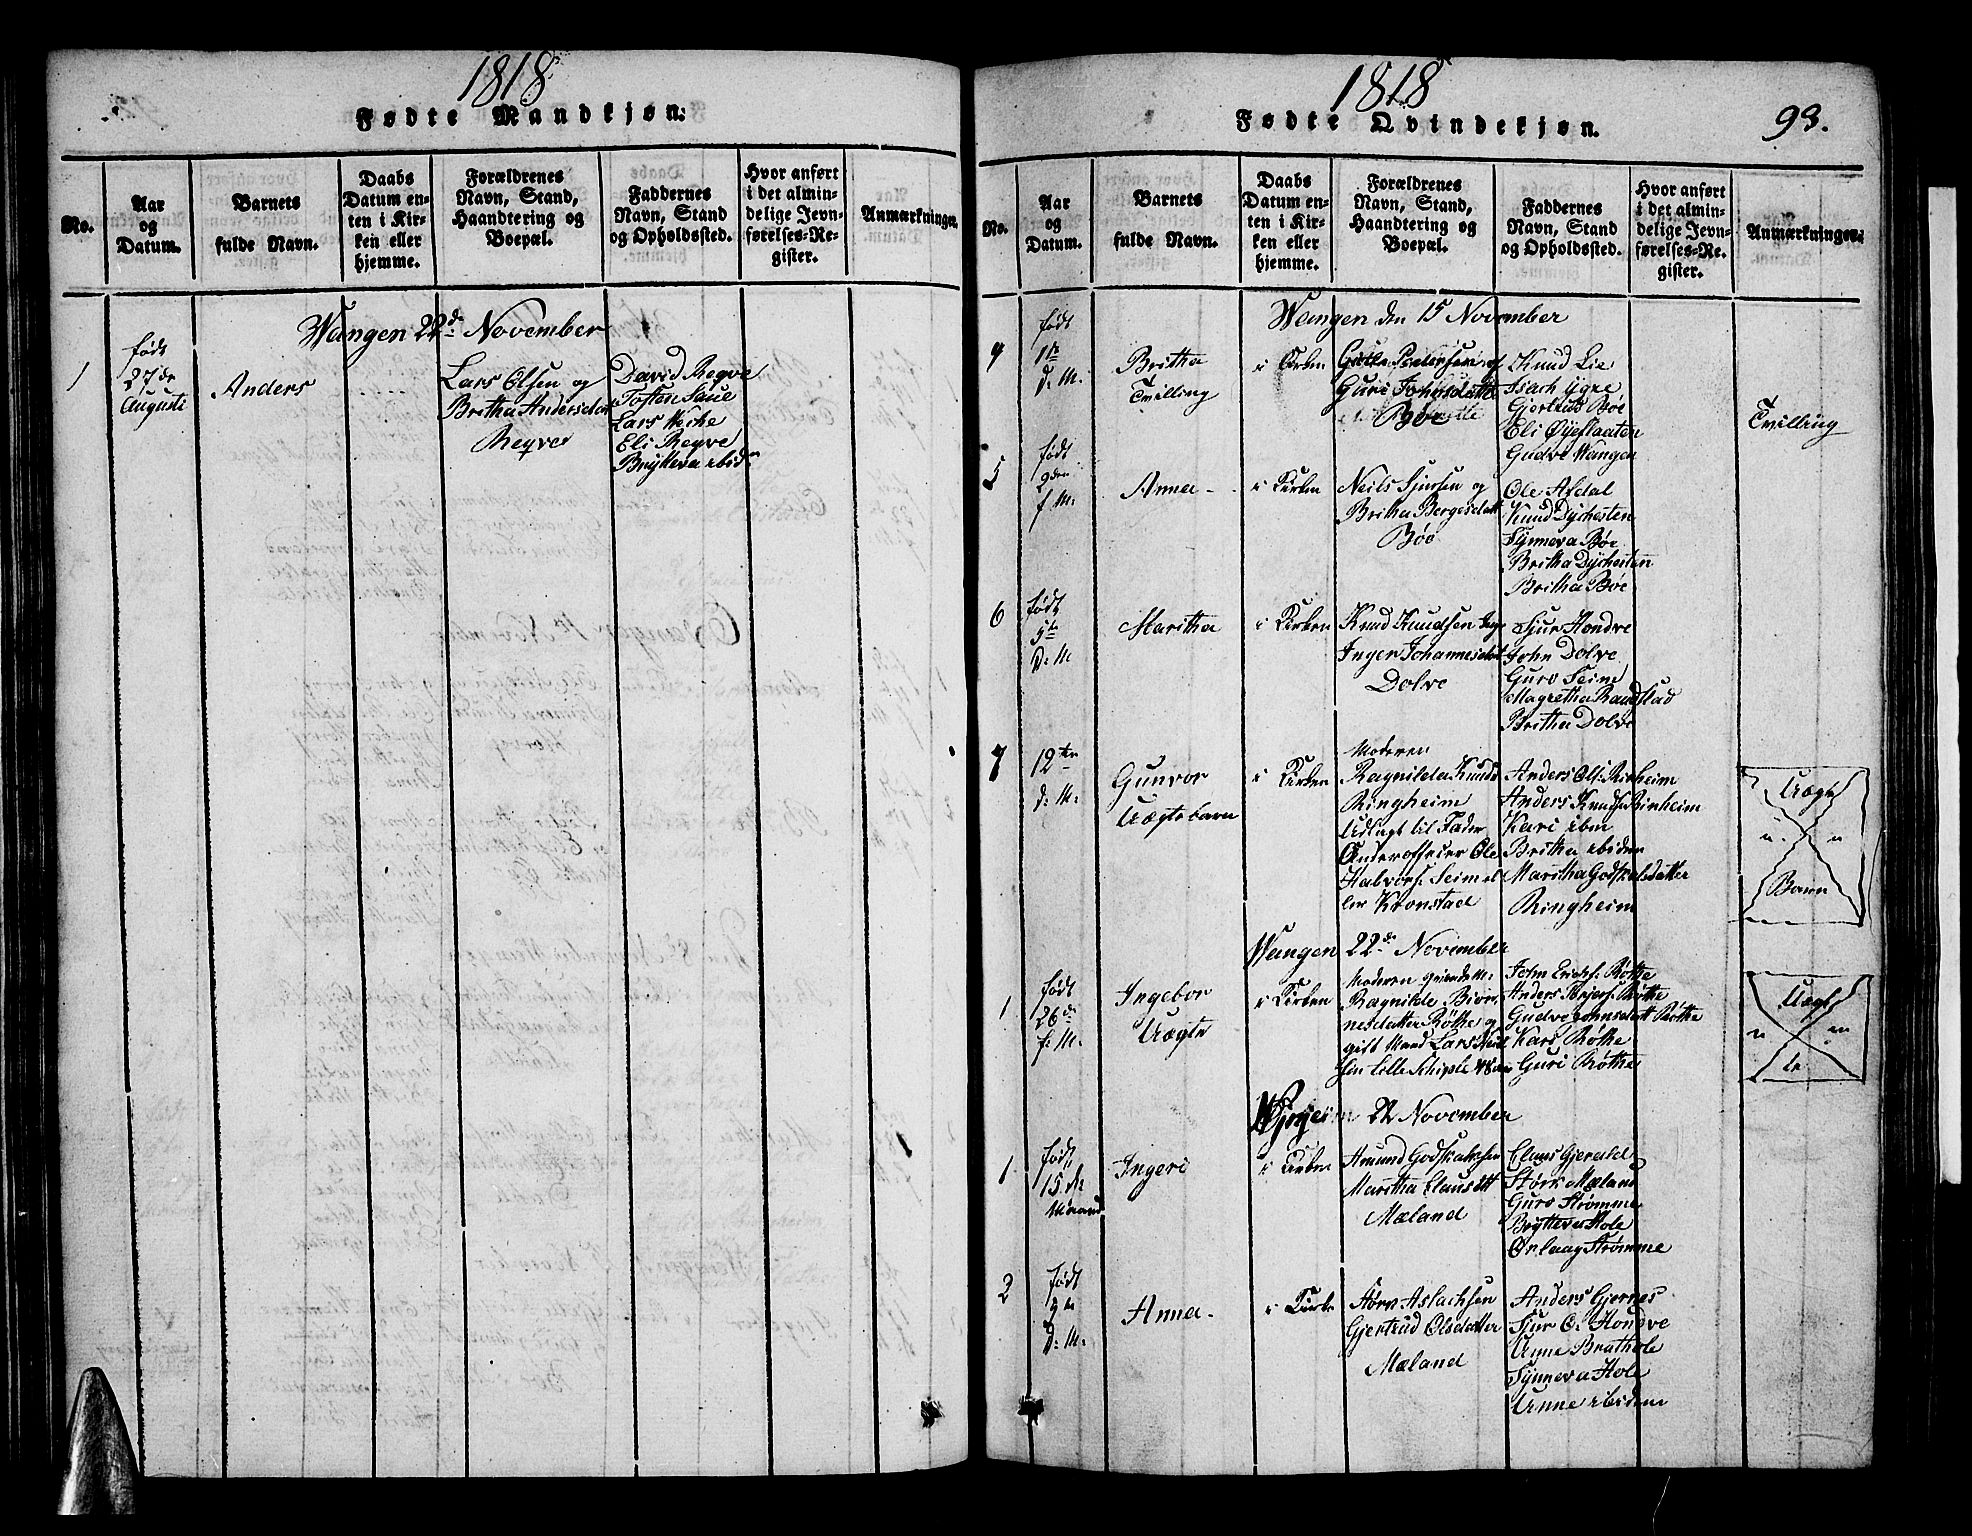 1818
Fødte Mandkjøn.
No.
Aar
og
Datum.
Barnets
fulde Navn.
Daabs
Datum en-
ten i Kir-
ken eller
hjemme.
Forældrenes
Navn, Stand,
Haandtering og
Boepæl.
Faddernes
Navn, Stand
og Opholdssted.
Hvor anført
i det almin-
delige Jevn-
førelses-Re-
gister.
Anmærkninger.
Wangen 22de November
1
født
27de
Augusti
Anders
Lars Olsen og
Britha Andersdat
Reqve
David Reqve
Tosten Saue
Lars
Eli Reqve
Brytteva ibid
1818
Fødte Qvindekjøn.
93.
No.
Aar
og
Datum.
Barnets
fulde Navn.
Daabs
Datum en-
ten i Kir-
ken eller
hjemme.
Forældrenes
Navn, Stand,
Haandtering og
Boepæl.
Faddernes
Navn, Stand
og Opholdssted.
Hvor anført
i det almin-
delige Jevn-
førelses-Re-
gister.
Anmærkninger.
Wangen den 15 November
født
d: M.
Britha
Tvilling
i Kirken
Guri
Bøe
Knud Lie
Isach Ygre
Gjertrud Bøe
Eli Øyeflaaten
Gudve Wangen
Tvilling
5
født
2den
f M.
Anna
i Kirken
Neils Sjursen og
Britha Bergesdatt
Bøe
Ole Afdal
Knud Dychesten
Synneva Bøe
Britha Dychesten
Britha Bøe
6
født
5te
D: M
Maritha
i Kirken
Knud Knudsen
Inger Johannesdat
Dolve
Sjur Hondve
John Dolve
Guro Seim
Magretha Raustad
Britha Dolve
7
12ten
d: M.
Gunvor
Uægte barn
i Kirken
Moderen
Ragnilda Knuds
Ringheim
Udlagt til Fader
Underofficier Ole
Halvors: Seim el
ler Kronstad
Anders Ols: Rinheim
Anders Knuds Rinheim
Kari ibm
Britha ibiden
Maritha Godskalsdatter
Ringheim
Uægt
Barn
Wangen 22de November
1
født
26de
f: M.
Ingebor
Uægte
i Kirken
Moderen
Ragnilde Biør
nesdatter Røthe og
gift Mand Lars
sen Lille
John Erichs: Røthe
Anders Røthe
Gudve Johnsdatt Røthe
Kari Røthe
Guri Røthe
Uægt
te
22 November
1
født
15. de
Ingeri
i Kirken
Amund Godskalksen
Maritha Clausdtt
Mæland
Claus Gjerald
Størk Mæland
Guro Strømme
Brytteva Hole
Strømme
2
født
9de
D: M.
Anna
i Kirken
Aslachsen
Gjertrud Olsdatter
Mæland
Anders Gjernes
Sjur O. Hondve
Anne Brathole
Synneva Hole
Anne ibidem